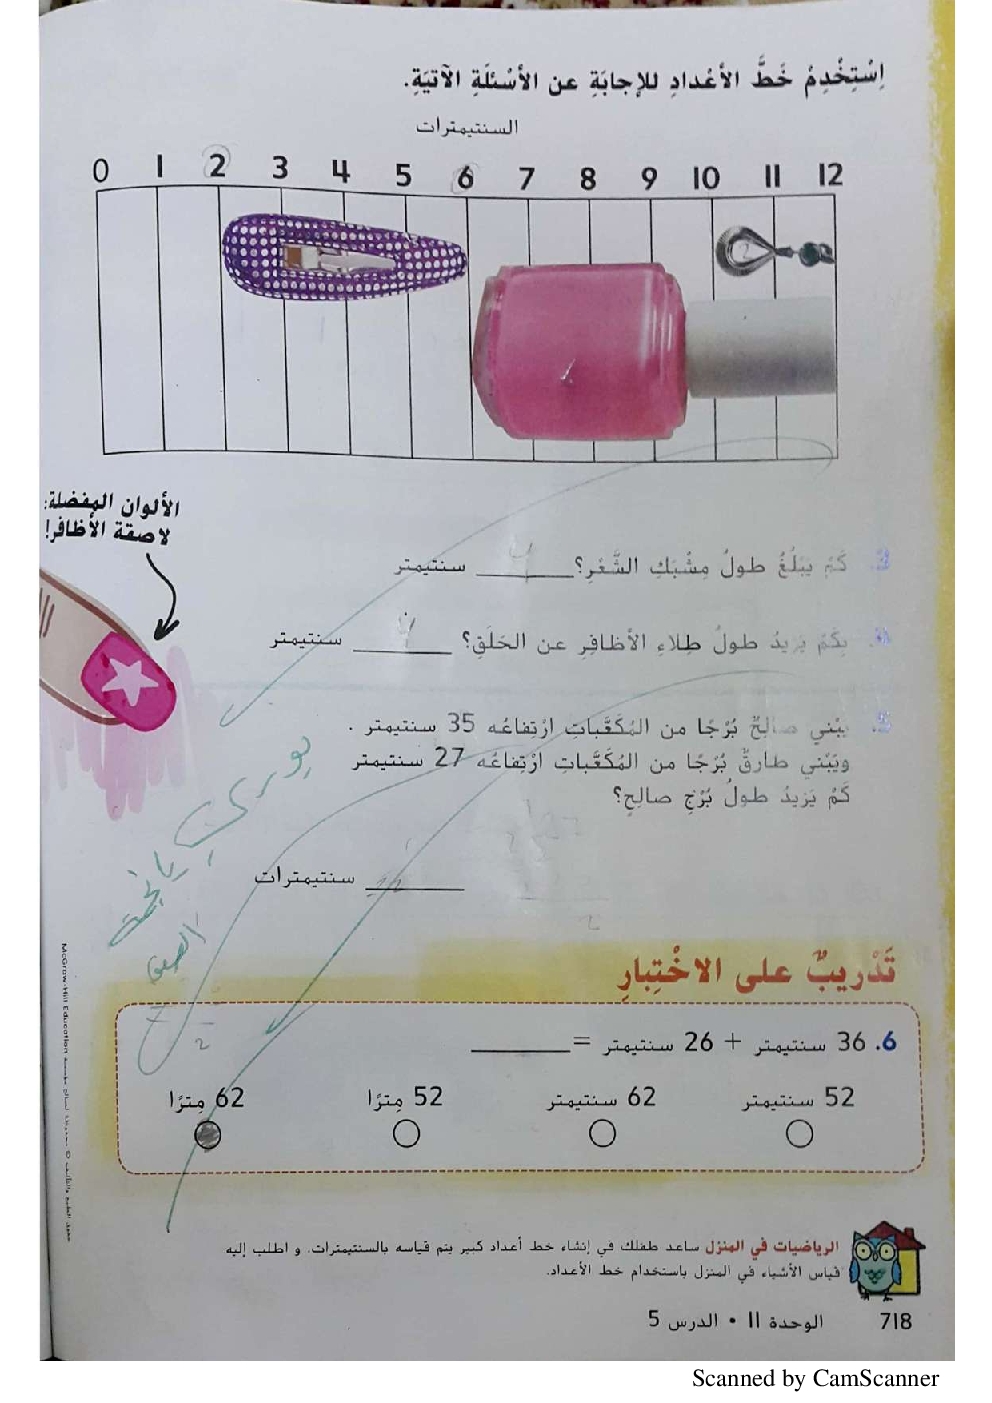 اِسْتِخْدِمْ خَطَّ الأَعْدادِ للإجابَةِ عن الأَسْئلَةِ الآتيَةِ.
السنتيمترات
0 1 2 3 4 5 6 7 8 9 10 11 12
الألوان المفضلة:
لاصقة الأظافر!
3. كَمْ يَبْلُغُ طولُ مِشْبَكِ الشَّعْرِ؟ ______ سنتيمتر
4. بِكَمْ يَزيدُ طولُ طِلاءِ الأظافِرِ عن الحَلَقِ؟ ______ سنتيمتر
5. يبْني صالِحٌ بُرْجًا من المُكَعَّباتِ ارْتِفاعُه 35 سنتيمتر .
ويَبْني طارِقٌ بُرْجًا من المُكَعَّباتِ ارْتِفاعُه 27 سنتيمتر
كَمْ يَزيدُ طولُ بُرْجِ صالِحٍ؟
______ سنتيمترات
تَدْريبٌ على الاخْتِبارِ
6. 36 سنتيمتر + 26 سنتيمتر = ______
52 سنتيمتر 62 سنتيمتر 52 مِترًا 62 مِترًا
الرياضيات في المنزل ساعد طفلك في إنشاء خط أعداد كبير يتم قياسه بالسنتيمترات. و اطلب إليه
قياس الأشياء في المنزل باستخدام خط الأعداد.
718 الوحدة 11 • الدرس 5
McGraw-Hill Education
Scanned by CamScanner